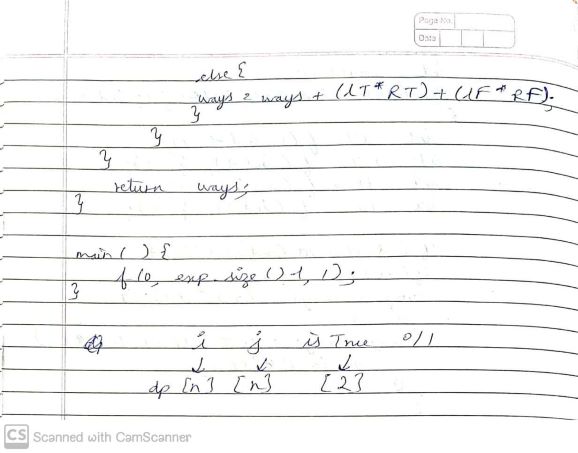 Page No.
Date
else {
ways = ways + (lT * RT) + (lF * RF);
}
}
}
return ways;
}
main ( ) {
f (0, exp. size ( ) -1, 1);
}
i j is True 0/1
↓ ↓ ↓
dp [n] [n] [2]
CS Scanned with CamScanner